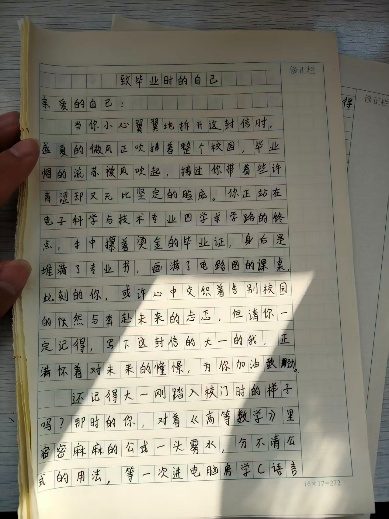 致毕业时的自己
亲爱的自己：
当你小心翼翼地拆开这封信时，
盛夏的微风正吹拂着整个校园，毕业
帽的流苏被风吹起，拂过你带着些许
青涩却又无比坚定的脸庞。你正站在
电子科学与技术专业四学年学路的终
点，手中攥着烫金的毕业证，身后是
堆满了专业书，画满了电路图的课桌。
此刻的你，或许心中交织着告别校园
的怅然与奔赴未来的忐忑，但请你一
定记得，写下这封信的大一的我，正
满怀着对未来的憧憬，为你加油鼓劲。
还记得大一刚踏入校门时的样子
吗？那时的你，对着《高等数学》里
密密麻麻的公式一头雾水，分不清公
式的用法，第一次进电脑房学C语言
修正栏
修正栏
得